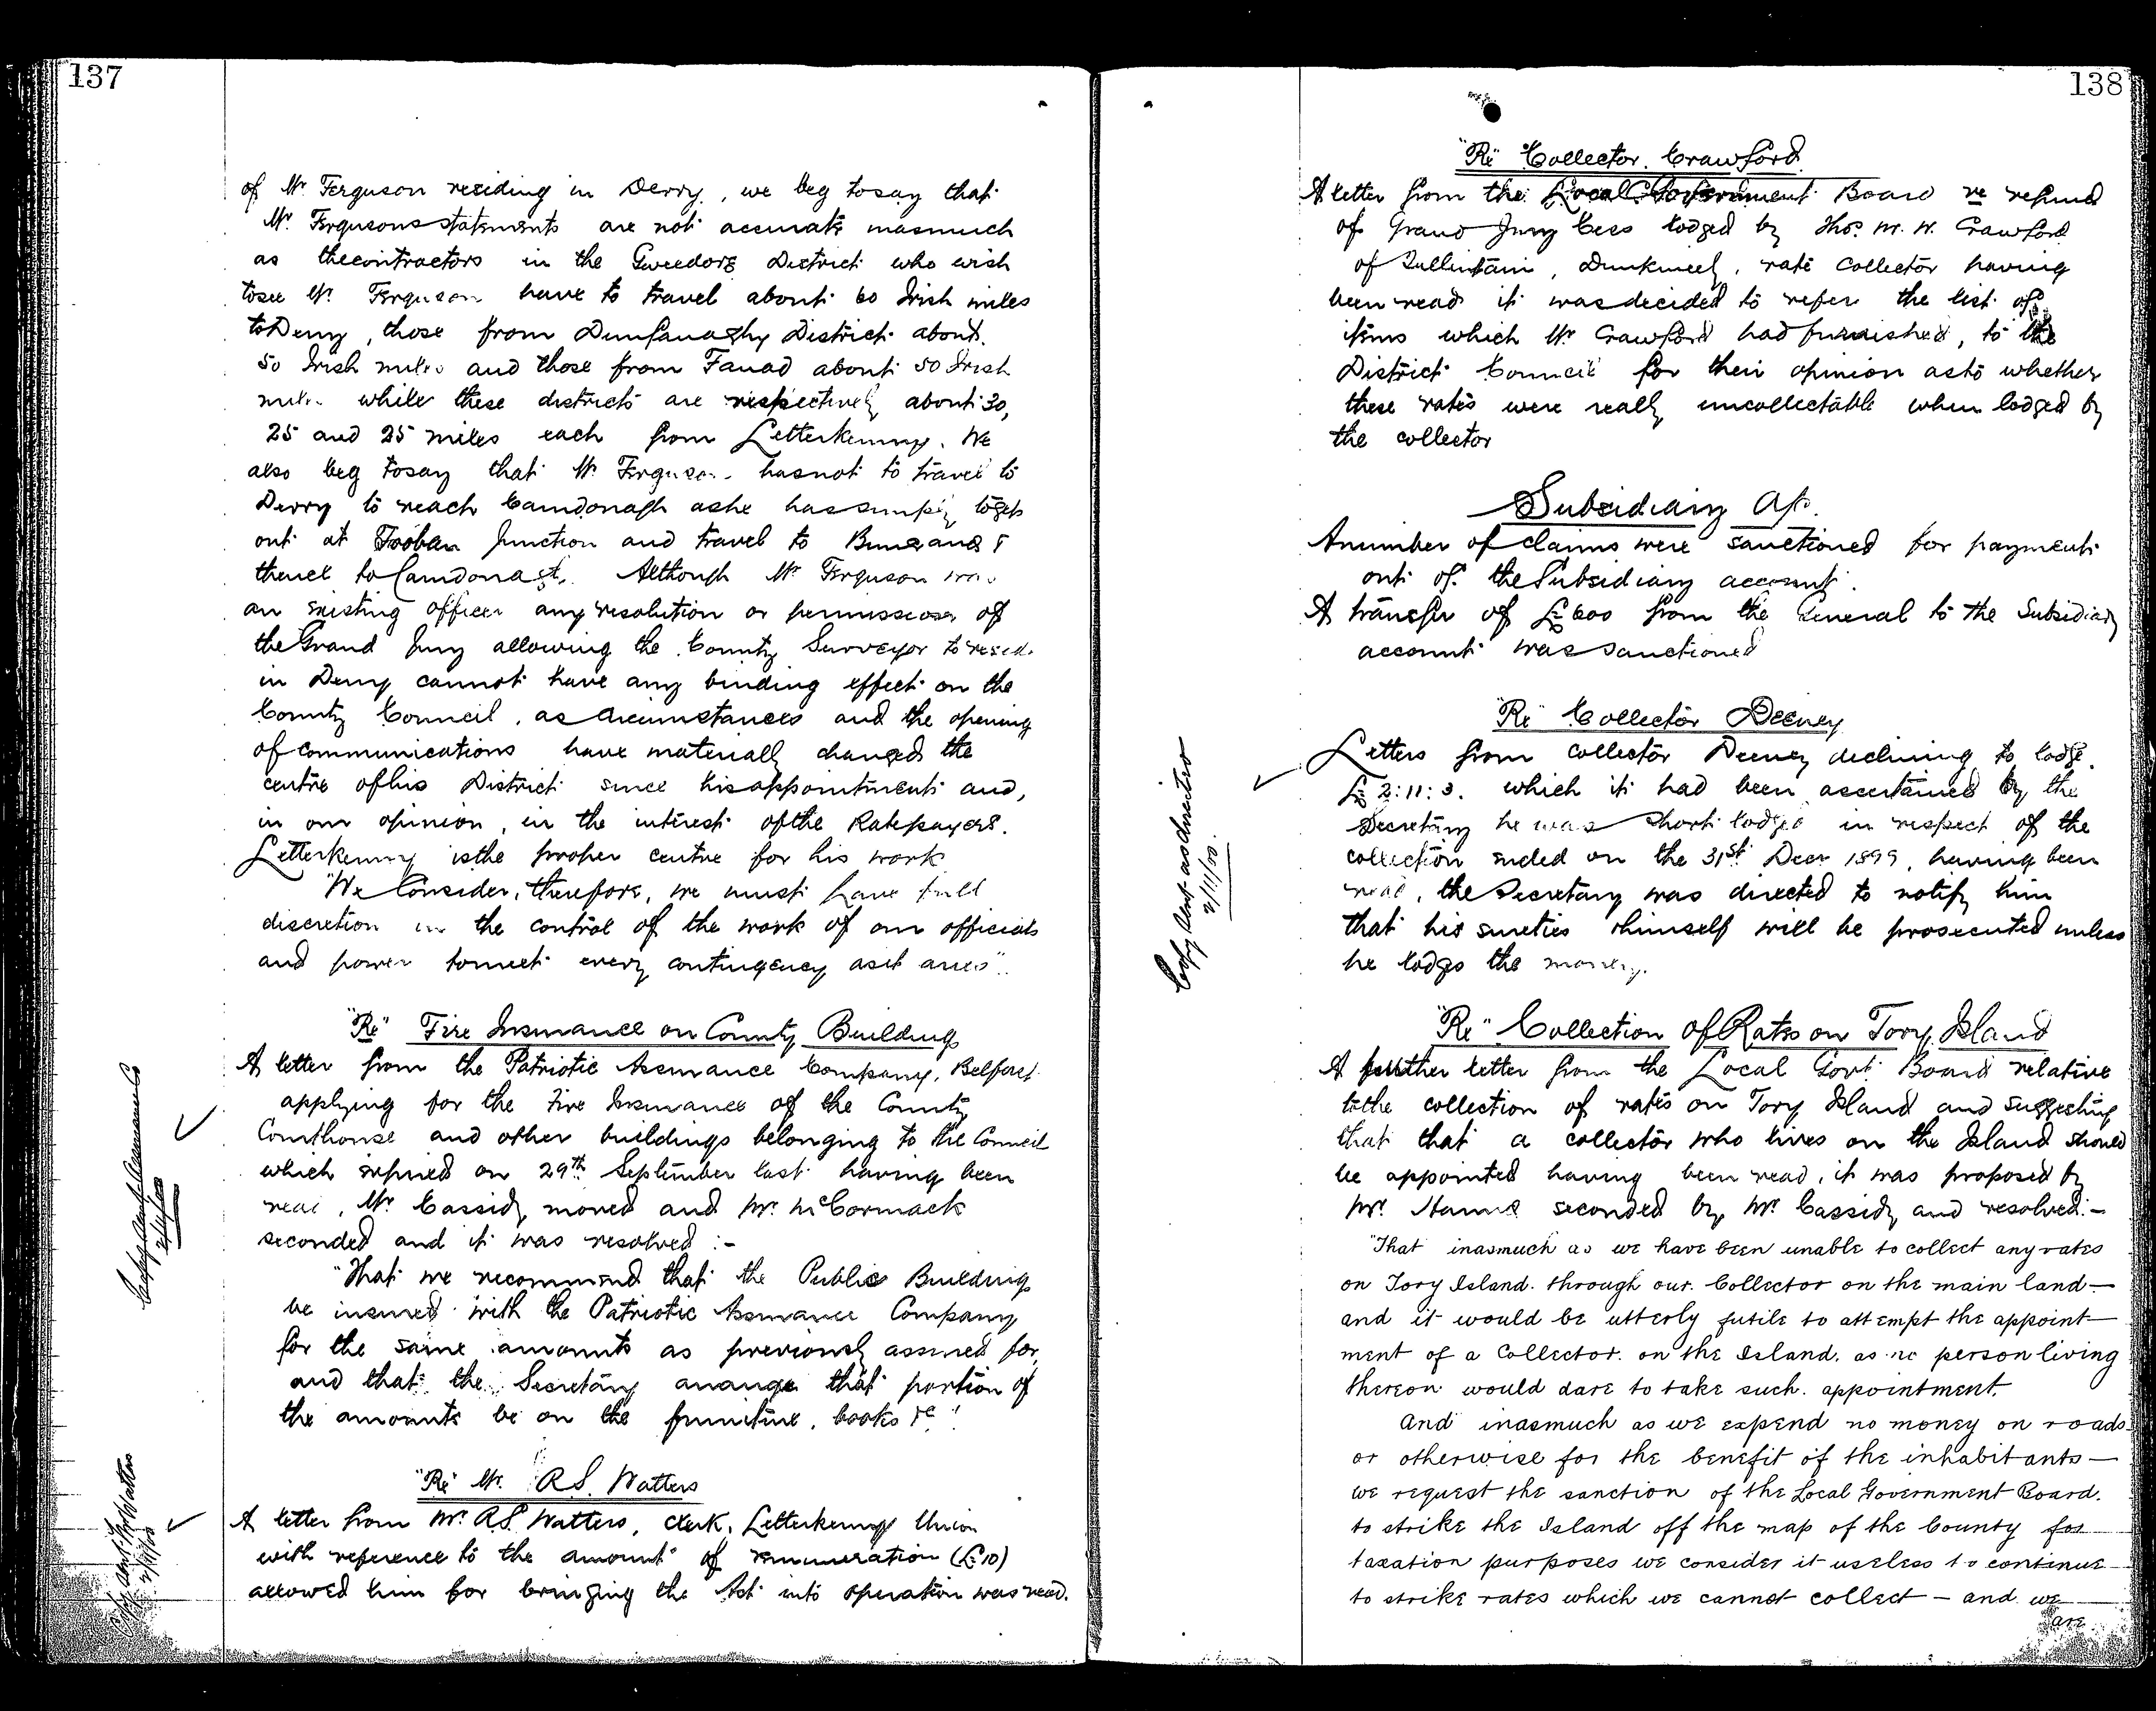 137
of Mr Ferguson residing in Derry, we beg to say that
Mr Fergusons statements are not accurate inasmuch
as the contractors in the Gweedore District who wish
to see Mr Ferguson have to travel about 60 Irish miles
to Derry, those from Dunfanaghy District about
50 Irish miles and those from Fanad about 50 Irish
miles while these districts are respectively about 30,
25 and 25 miles each from Letterkenny. We
also beg to say that Mr Ferguson has not to travel to
Derry to reach Carndonagh as he has simply to get
out at Tooban Junction and travel to Buncrana &
thence to Carndonagh. Although Mr Ferguson was
an existing officer any resolution or permission of
the Grand Jury allowing the County Surveyor to reside
in Derry cannot have any binding effect on the
County Council, as circumstances and the opening
of communications have materially changed the
centre of his District since his appointment and,
in our opinion, in the interest of the Ratepayers.
Letterkenny is the proper centre for his work
"We Consider, therefore, we must have full
discretion in the control of the work of our officials
and power to meet every contingency as it arises".
"Re" Fire Insurance on County Buildings
A letter from the Patriotic Assurance Company, Belfast
applying for the Fire Insurance of the County
Courthouse and other buildings belonging to the Council
which expired on 29th September last having been
read, Mr Cassidy moved and Mr. McCormack
seconded and it was resolved :-
"That we recommend that the Public Buildings
be insured with the Patriotic Assurance Company
for the same amounts as previously assured for,
and that the Secretary arrange that portion of
the amounts be on the furniture, books &c"
Copy sent
2/11/00
"Re" Mr. R.S. Watters
A letter from Mr. R.S. Watters, Clerk, Letterkenny Union
with reference to the amount of remuneration (£10)
allowed him for bringing the Act into operation was read.
Copy sent Mr Watters
2/11/00
138
"Re" Collector Crawford
A letter from the Local Government Board re refund
of Grand Jury Cess lodged by Thos. M. W. Crawford
of Dunkineely, rate collector having
been read it was decided to refer the list of
items which Mr Crawford had furnished, to the
District Council for their opinion as to whether
these rates were really uncollectable when lodged by
the collector
Subsidiary A/c.
A number of claims were sanctioned for payment
out of the Subsidiary account.
A transfer of £600 from the General to the Subsidiary
account was sanctioned
"Re" Collector Deeney
Letters from collector Deeney declining to lodge
£2:11:3. which it had been ascertained by the
Secretary he was short lodged in respect of the
collection ended on the 31st Decr 1899, having been
read, the Secretary was directed to notify him
that his sureties & himself will be prosecuted unless
he lodges the money.
Copy sent as directed
2/11/00.
"Re" Collection of Rates on Tory Island
A further letter from the Local Govt Board relative
to the collection of rates on Tory Island and suggesting
that that a collector who lives on the Island should
be appointed having been read, it was proposed by
Mr. seconded by Mr Cassidy and resolved:-
"That inasmuch as we have been unable to collect any rates
on Tory Island. through our Collector on the main land—
and it would be utterly futile to attempt the appoint—
ment of a Collector. on the Island. as no person living
thereon would dare to take such. appointment.
And inasmuch as we expend no money on roads
or otherwise for the benefit of the inhabitants—
we request the sanction of the Local Government Board.
to strike the Island off the map of the County for
taxation purposes we consider it useless to continue
to strike rates which we cannot collect — and we
are